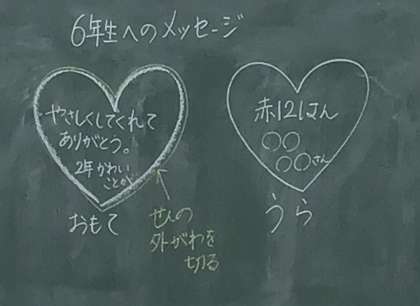 6年生へのメッセージ
やさしくしてくれて
ありがとう。
2年かわい
ことか
おもて
せんの
外がわを
切る
赤12はん
○○
○○さん
うら